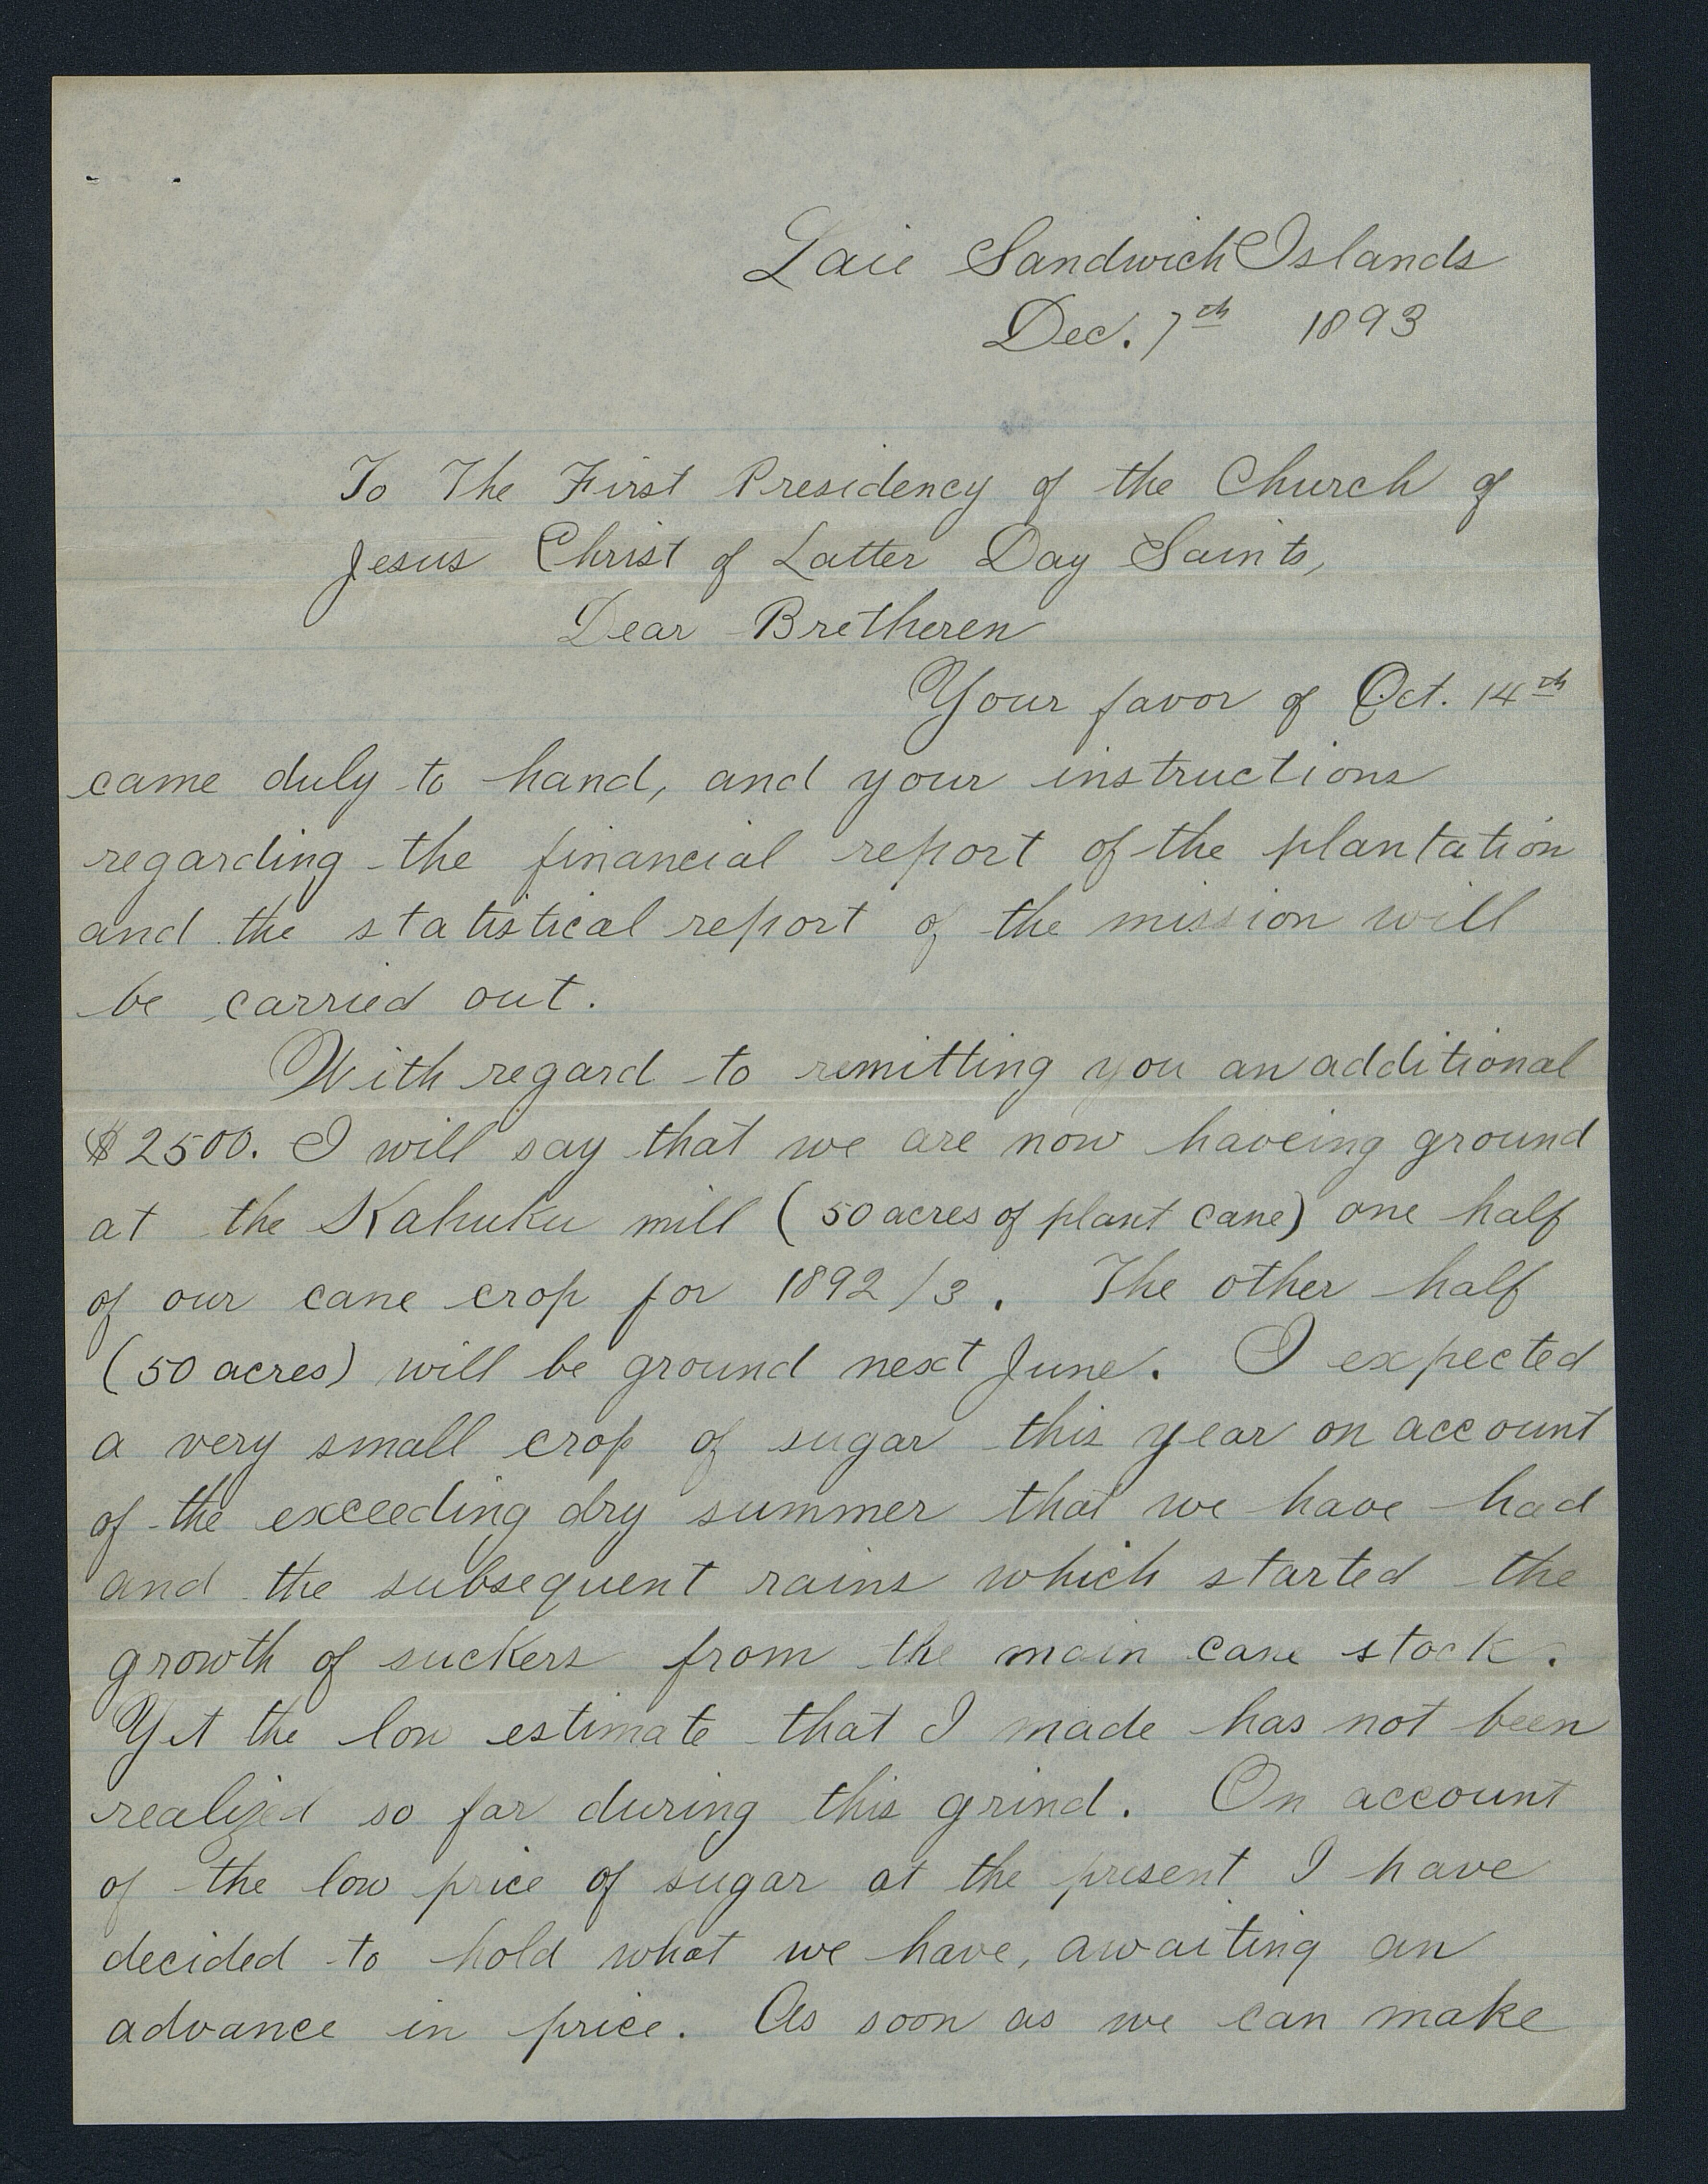 Laie Sandwich Islands
Dec. 7th 1893
To The First Presidency of the Church of
Jesus Christ of Latter Day Saints,
Dear Bretheren
Your favor of Oct. 14th
came duly to hand, and your instructions
regarding the financial report of the plantation
and the statistical report of the mission will
be carried out.
With regard to remitting you an additional
$2500. I will say that we are now haveing ground
at the Kahuku mill (50 acres of plant cane) one half
of our cane crop for 1892/3. The other half
(50 acres) will be ground next June. I expected
a very small crop of sugar this year on account
of the exceeding dry summer that we have had
and the subsequent rains which started the
growth of suckers from the main cane stock.
Yet the low estimate that I made has not been
realized so far during this grind. On account
of the low price of sugar at the present I have
decided to hold what we have, awaiting an
advance in price. As soon as we can make